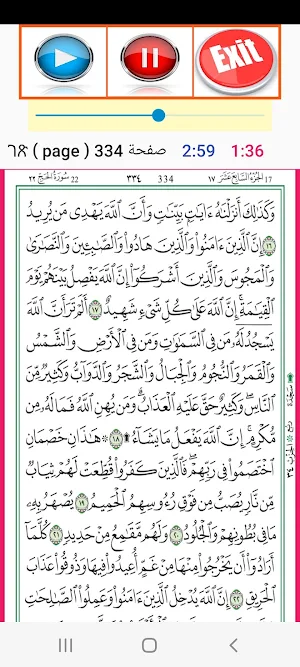 Exit
٦٨ ( page ) 334 صفحة 2:59 1:36
22 سُورَةُ الحَجِّ ٢٢ ٣٣٤ 334 الجُزْءُ السَّابِعَ عَشَرَ ١٧ 17
وَكَذَٰلِكَ أَنزَلْنَٰهُ ءَايَٰتٍۭ بَيِّنَٰتٍ وَأَنَّ ٱللَّهَ يَهْدِى مَن يُرِيدُ
١٦ إِنَّ ٱلَّذِينَ ءَامَنُوا۟ وَٱلَّذِينَ هَادُوا۟ وَٱلصَّٰبِـِٔينَ وَٱلنَّصَٰرَىٰ
وَٱلْمَجُوسَ وَٱلَّذِينَ أَشْرَكُوٓا۟ إِنَّ ٱللَّهَ يَفْصِلُ بَيْنَهُمْ يَوْمَ
ٱلْقِيَٰمَةِ ۚ إِنَّ ٱللَّهَ عَلَىٰ كُلِّ شَىْءٍ شَهِيدٌ ١٧ أَلَمْ تَرَ أَنَّ ٱللَّهَ
يَسْجُدُ لَهُۥ مَن فِى ٱلسَّمَٰوَٰتِ وَمَن فِى ٱلْأَرْضِ وَٱلشَّمْسُ
وَٱلْقَمَرُ وَٱلنُّجُومُ وَٱلْجِبَالُ وَٱلشَّجَرُ وَٱلدَّوَآبُّ وَكَثِيرٌ مِّنَ
ٱلنَّاسِ ۖ وَكَثِيرٌ حَقَّ عَلَيْهِ ٱلْعَذَابُ ۗ وَمَن يُهِنِ ٱللَّهُ فَمَا لَهُۥ مِن
مُّكْرِمٍ ۚ إِنَّ ٱللَّهَ يَفْعَلُ مَا يَشَآءُ ۩ ١٨ ۞ هَٰذَانِ خَصْمَانِ
ٱخْتَصَمُوا۟ فِى رَبِّهِمْ ۖ فَٱلَّذِينَ كَفَرُوا۟ قُطِّعَتْ لَهُمْ ثِيَابٌ
مِّن نَّارٍ يُصَبُّ مِن فَوْقِ رُءُوسِهِمُ ٱلْحَمِيمُ ١٩ يُصْهَرُ بِهِۦ
مَا فِى بُطُونِهِمْ وَٱلْجُلُودُ ٢٠ وَلَهُم مَّقَٰمِعُ مِنْ حَدِيدٍ ٢١ كُلَّمَآ
أَرَادُوٓا۟ أَن يَخْرُجُوا۟ مِنْهَا مِنْ غَمٍّ أُعِيدُوا۟ فِيهَا وَذُوقُوا۟ عَذَابَ
ٱلْحَرِيقِ ٢٢ إِنَّ ٱللَّهَ يُدْخِلُ ٱلَّذِينَ ءَامَنُوا۟ وَعَمِلُوا۟ ٱلصَّٰلِحَٰتِ
سَجْدَة
رُبع الحِزْب ٣٤